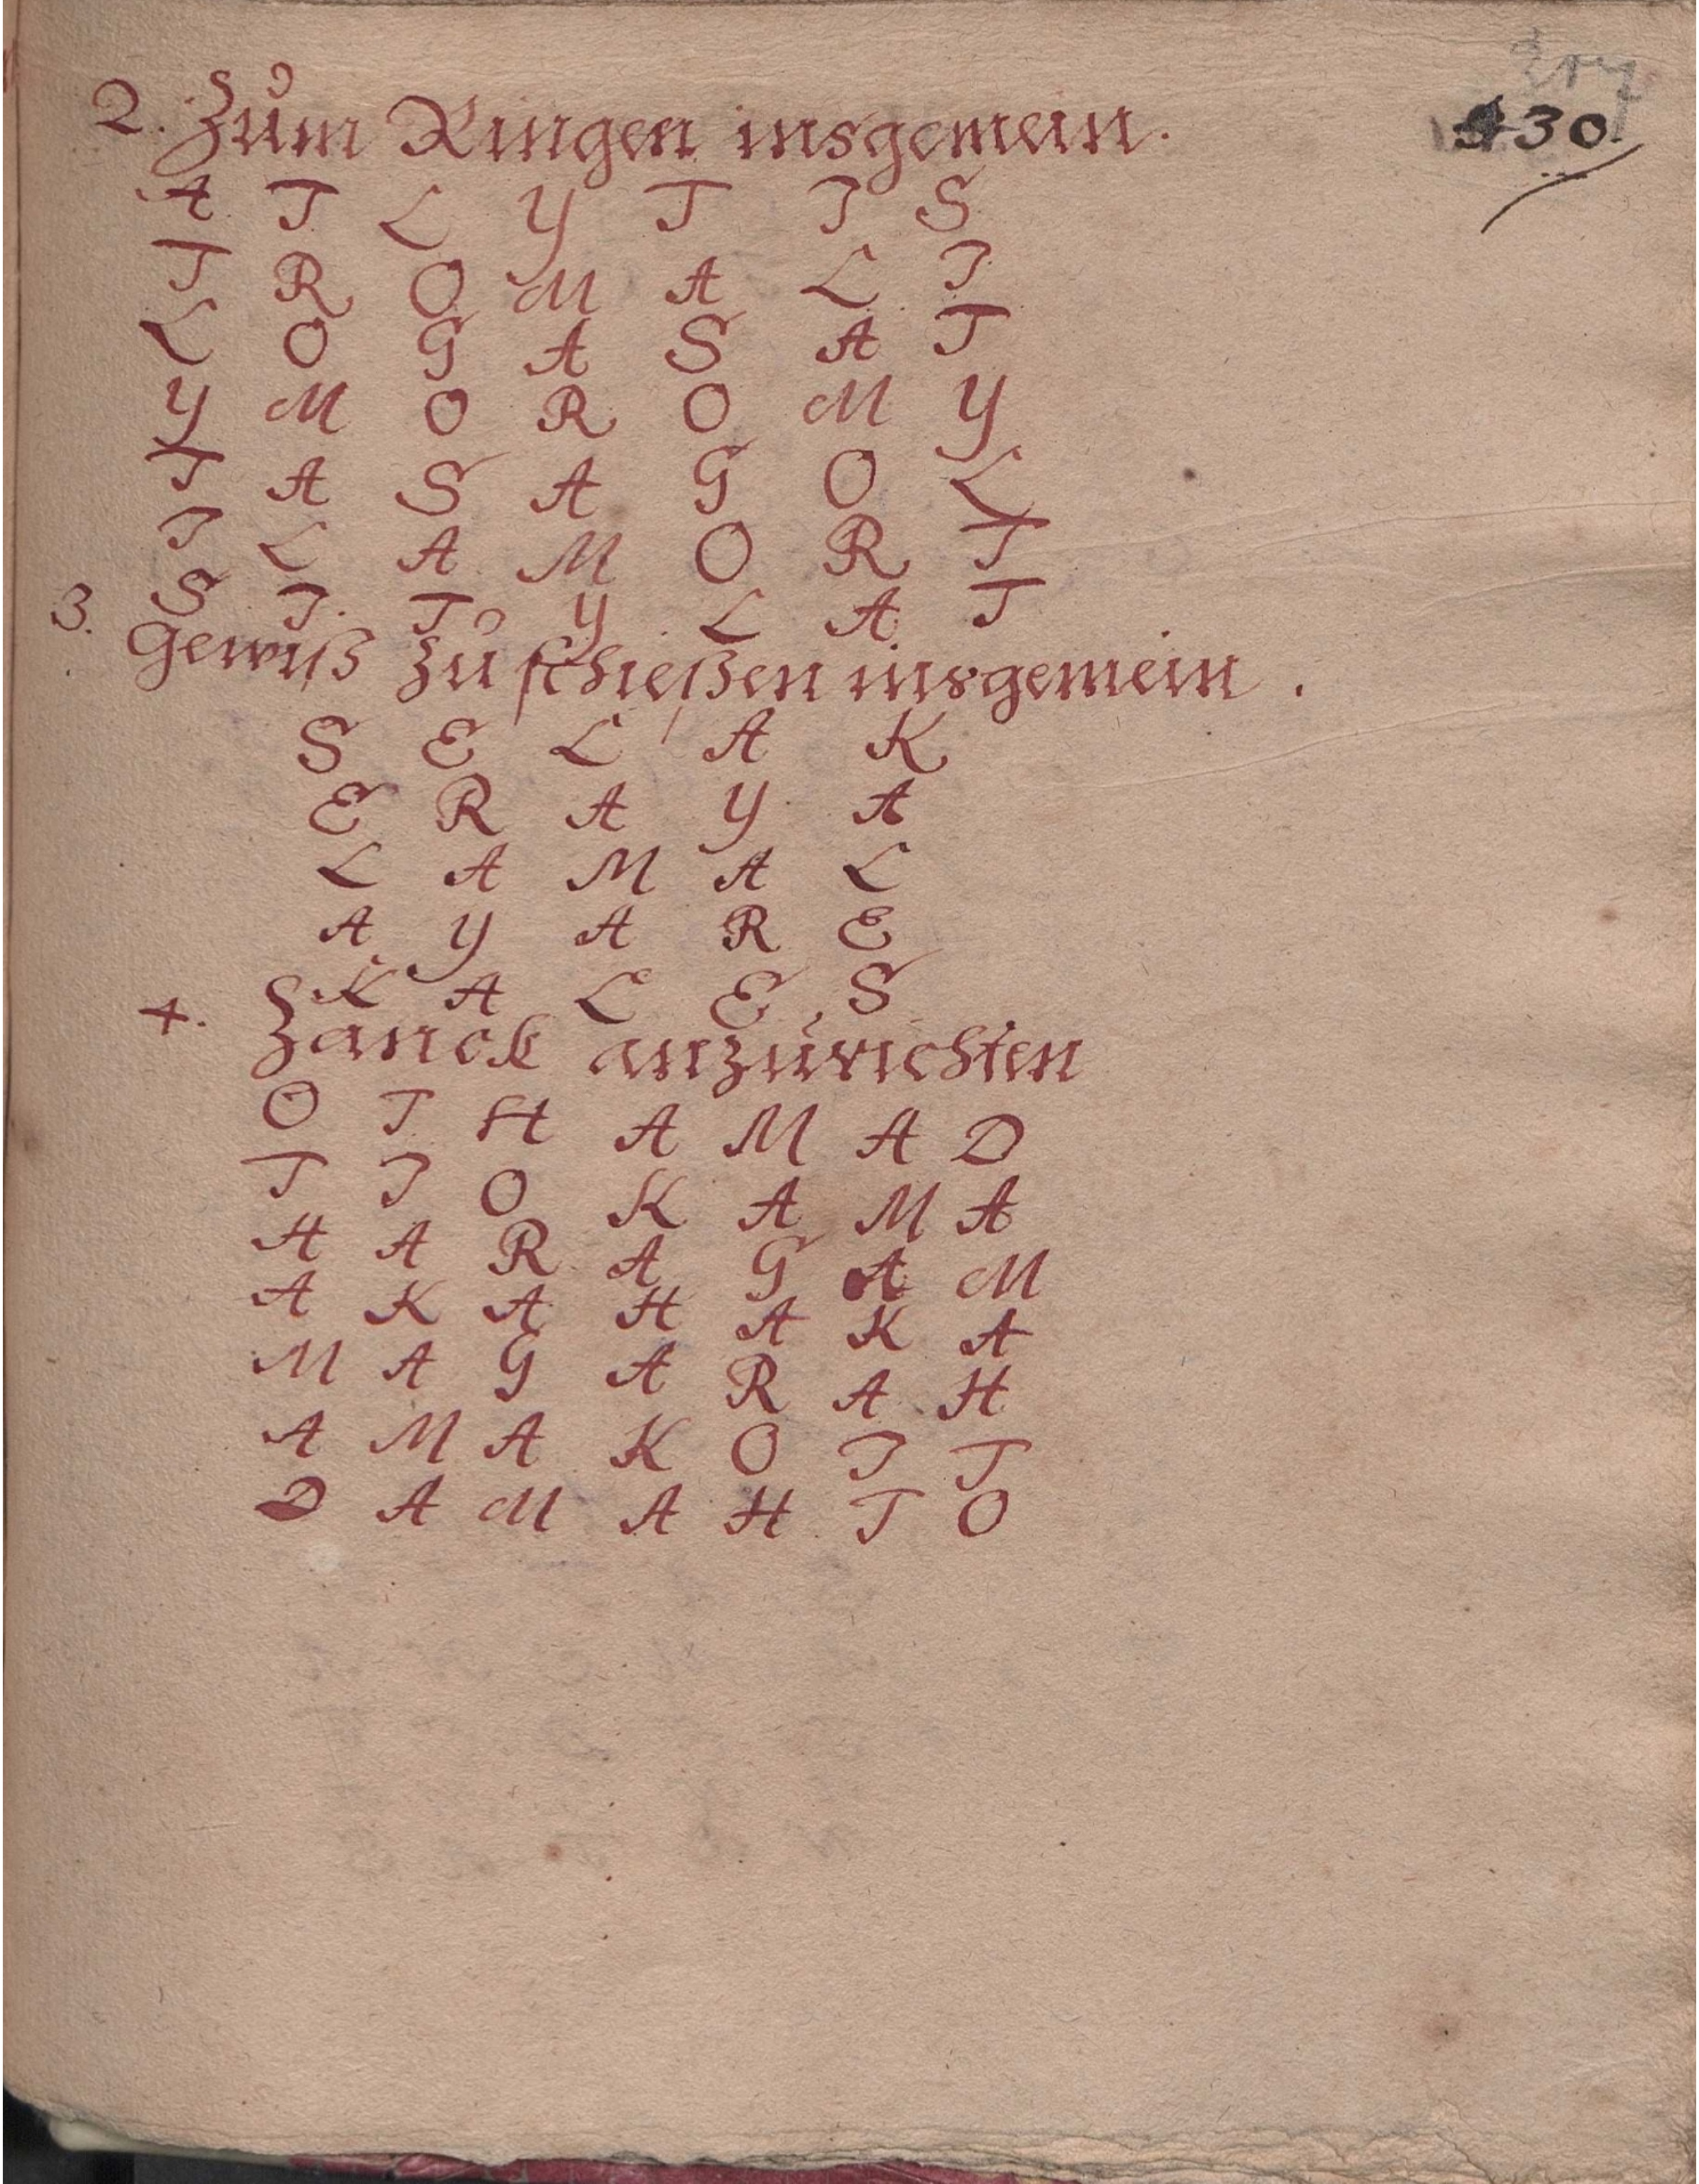 130.
2. Zům Ringen insgemein.
A T L Y T I S
T R O M A L I
L O G A S A T
Y M O R O M Y
T A S A G O L
I L A M O R T
S I T Y L A T
3. Gewiß Zů schießen insgemein.
S E L A K
E R A Y A
L A M A L
A Y A R E
K A L E S
4. Zanck anzůrichten
O T H A M A D
T I O K A M A
H A R A G A M
A K A H A K A
M A G A R A H
A M A K O I T
D A M A H T O